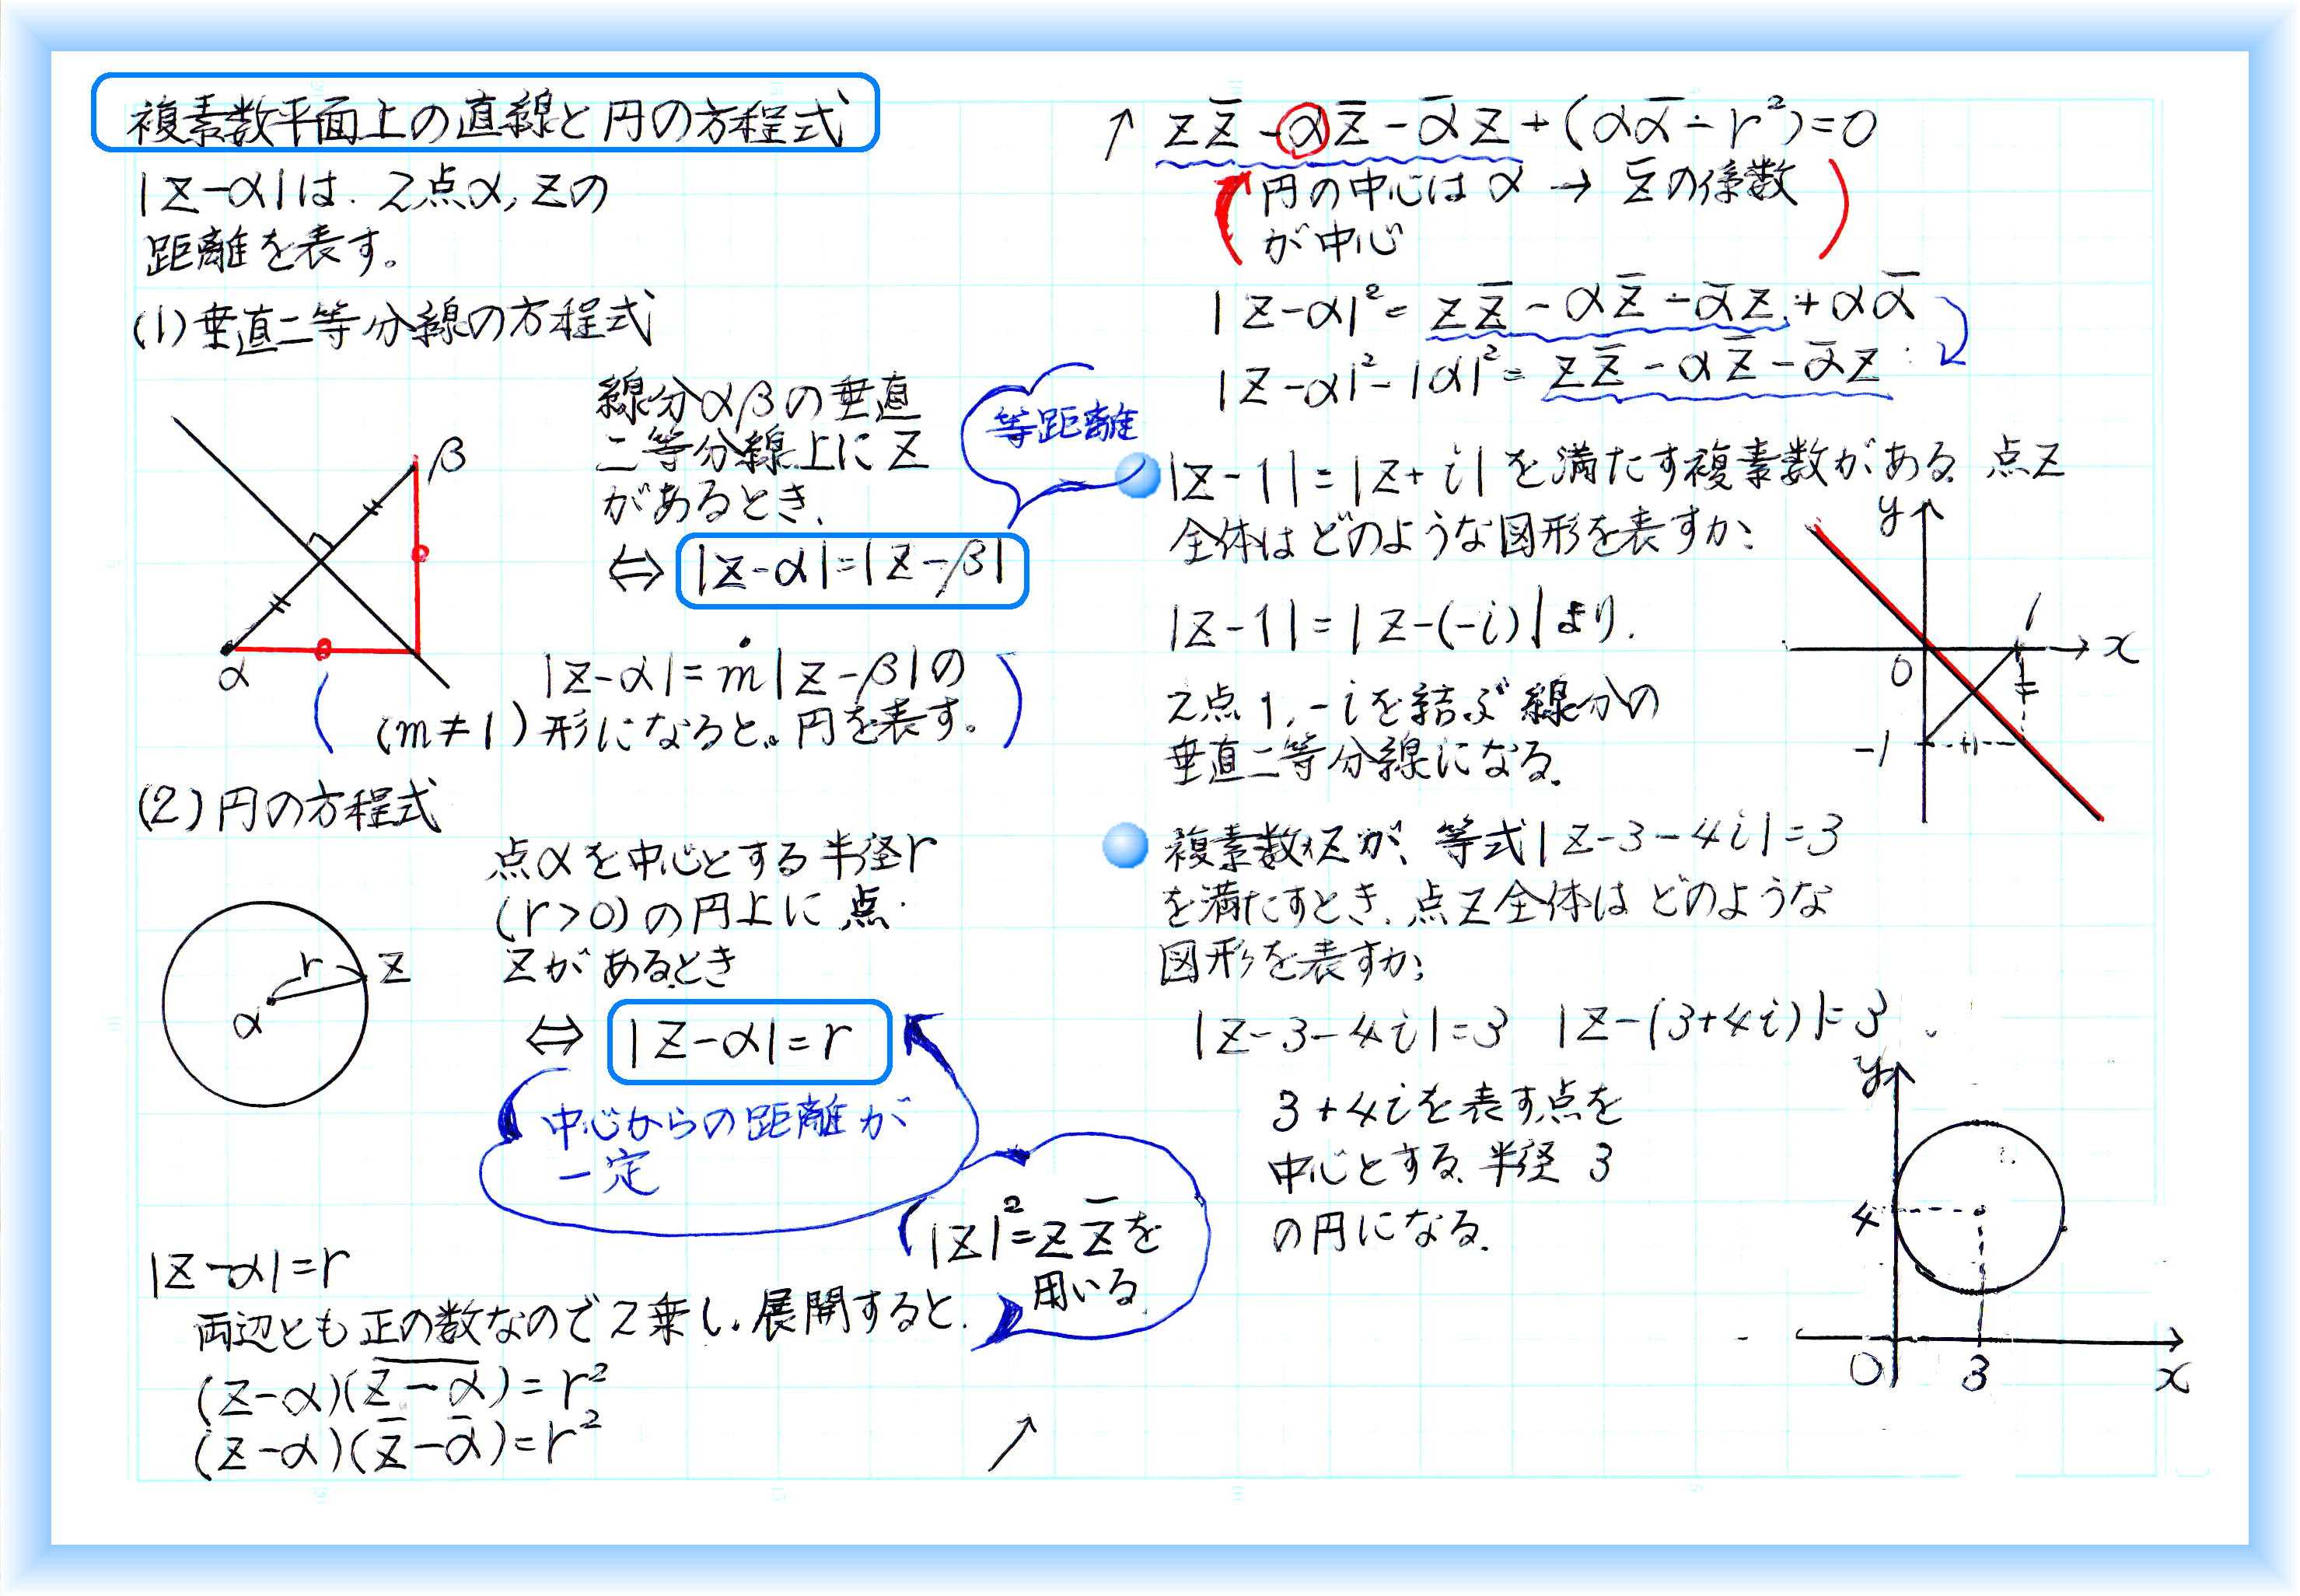 複素数平面上の直線と円の方程式
|z-α|は、2点α, zの
距離を表す。
(1)垂直二等分線の方程式
β
α
線分αβの垂直
二等分線上にz
があるとき、
⇔ |z-α|=|z-β|
等距離
|z-α|=m|z-β|の
(m≠1)形になると、円を表す。
(2)円の方程式
点αを中心とする半径r
(r>0)の円上に点
zがあるとき
r
z
α
⇔ |z-α|=r
中心からの距離が
一定
|z|²=zz̄を
用いる
|z-α|=r
両辺とも正の数なので2乗し、展開すると、
(z-α)(\overline{z-α})=r²
(z-α)(z̄-ᾱ)=r²
↗
↗ zz̄-αz̄-ᾱz+(αᾱ-r²)=0
円の中心はα → z̄の係数
が中心
|z-α|²=zz̄-αz̄-ᾱz+αᾱ
|z-α|²-|α|²=zz̄-αz̄-ᾱz
|z-1|=|z+i|を満たす複素数がある 点z
全体はどのような図形を表すか。
|z-1|=|z-(-i)|より、
2点1, -iを結ぶ線分の
垂直二等分線になる。
y
1
x
0
-1
複素数zが、等式|z-3-4i|=3
を満たすとき、点z全体はどのような
図形を表すか。
|z-3-4i|=3 |z-(3+4i)|=3
3+4iを表す点を
中心とする、半径 3
の円になる。
y
4
O
3
x